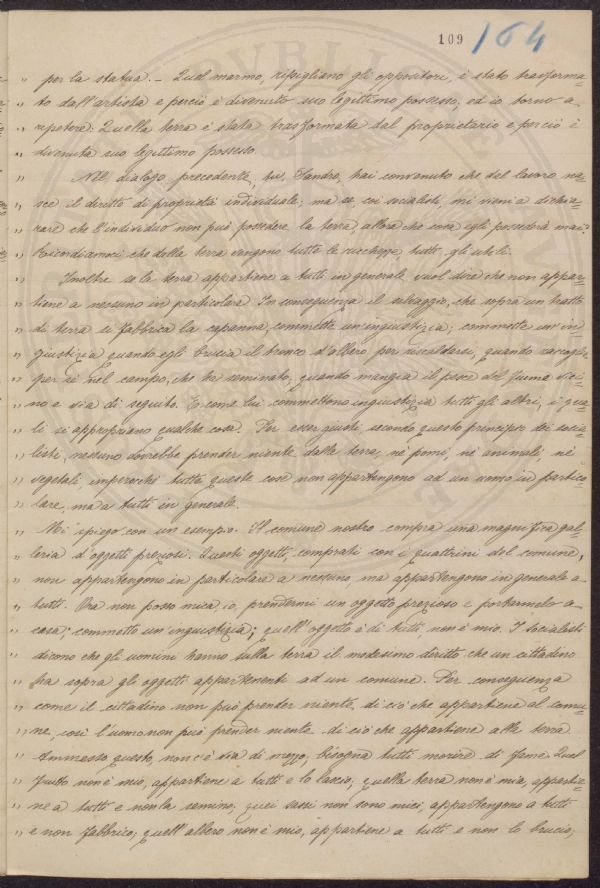 109 164
" per la statua. – Quel marmo, ripigliano gli oppositori, è stato trasforma=
" to dall'artista e perciò è divenuto suo legittimo possesso, ed io torno a
" ripetere: Quella terra è stata trasformata dal proprietario e perciò è
" divenuta suo legittimo possesso.
" Nel dialogo precedente, tu, Sandro, hai convenuto che del lavoro na=
" sce il diritto di proprietà individuale; ma se, voi socialisti, mi venite a dichia=
" rare che l'individuo non può possedere la terra, allora che cosa egli possederà mai?
" Ricordiamoci che dalla terra vengono tutte le ricchezze, tutti gli utili.
" Inoltre se la terra appartiene a tutti in generale vuol dire che non appar=
" tiene a nessuno in particolare. In conseguenza il selvaggio, che sopra un tratto
" di terra si fabbrica la capanna, commette un'ingiustizia; commette un'in=
" giustizia quando egli brucia il tronco d'albero per riscaldarsi, quando raccoglie
" per sé nel campo, che ha seminato, quando mangia il pesce del fiume vici=
" no e via di seguito. E come lui commettono ingiustizia tutti gli altri, i qua=
" li si appropriano qualche cosa. Per esser giusti, secondo questo principio dei socia=
" listi, nessuno dovrebbe prender niente dalla terra, nè pomi, nè animali, nè
" vegetali, imperocchè tutte queste cose non appartengono ad un uomo in partico=
" lare, ma a tutti in generale.
" Mi spiego con un esempio. Il comune nostro compra una magnifica gal=
" leria d'oggetti preziosi. Questi oggetti, comprati con i quattrini del comune,
" non appartengono in particolare a nessuno, ma appartengono in generale a
" tutti. Ora non posso mica io, prendermi un oggetto prezioso e portarmelo a
" casa; commetto un'ingiustizia; quell'oggetto è di tutti, non è mio. I socialisti
" dicono che gli uomini hanno sulla terra il medesimo diritto che un cittadino
" ha sopra gli oggetti appartenenti ad un comune. Per conseguenza
" come il cittadino non può prender niente di ciò che appartiene al comu=
" ne, così l'uomo non può prender niente di ciò che appartiene alla terra
" Ammesso questo, non c'è via di mezzo, bisogna tutti morire di fame. Quel
" frutto non è mio, appartiene a tutti e lo lascio; quella terra non è mia, apparti=
" ne a tutti e non la semino; quei sassi non sono miei, appartengono a tutti
" e non fabbrico; quell'albero non è mio, appartiene a tutti e non lo brucio;